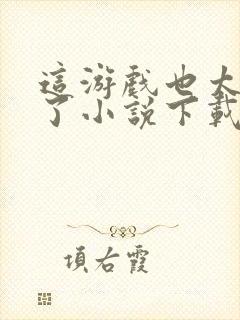 這游戲也太
了小說下載
項右霞